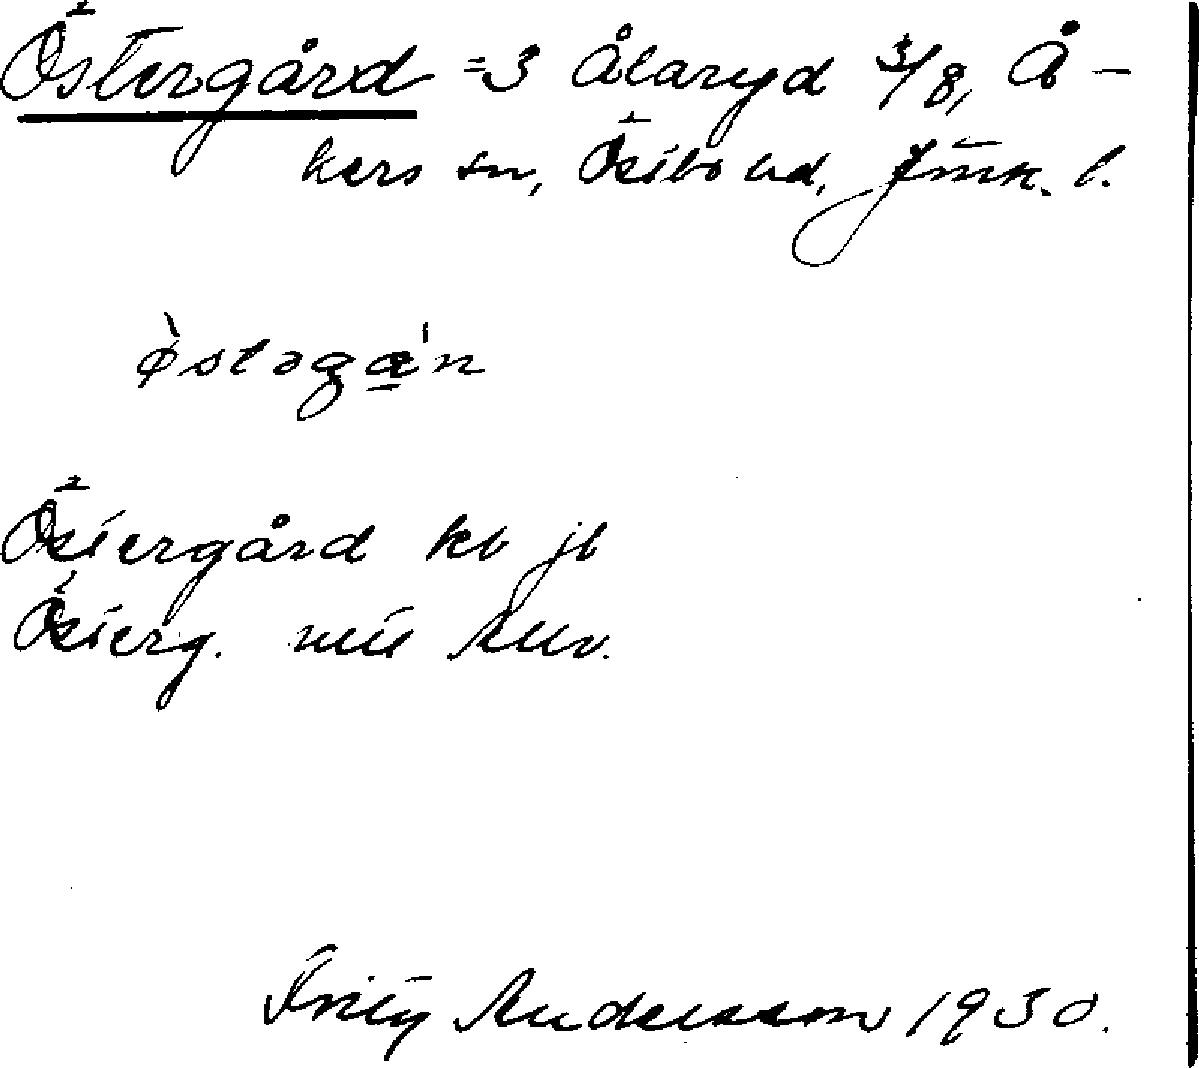 Östergård =3 Ålaryd 3/8, Å-
kers sn, Östbo hd, Jönk. l.
òstəgα̲'n
Östergård kb jb
Österg.
Fritz Andersson 1930.